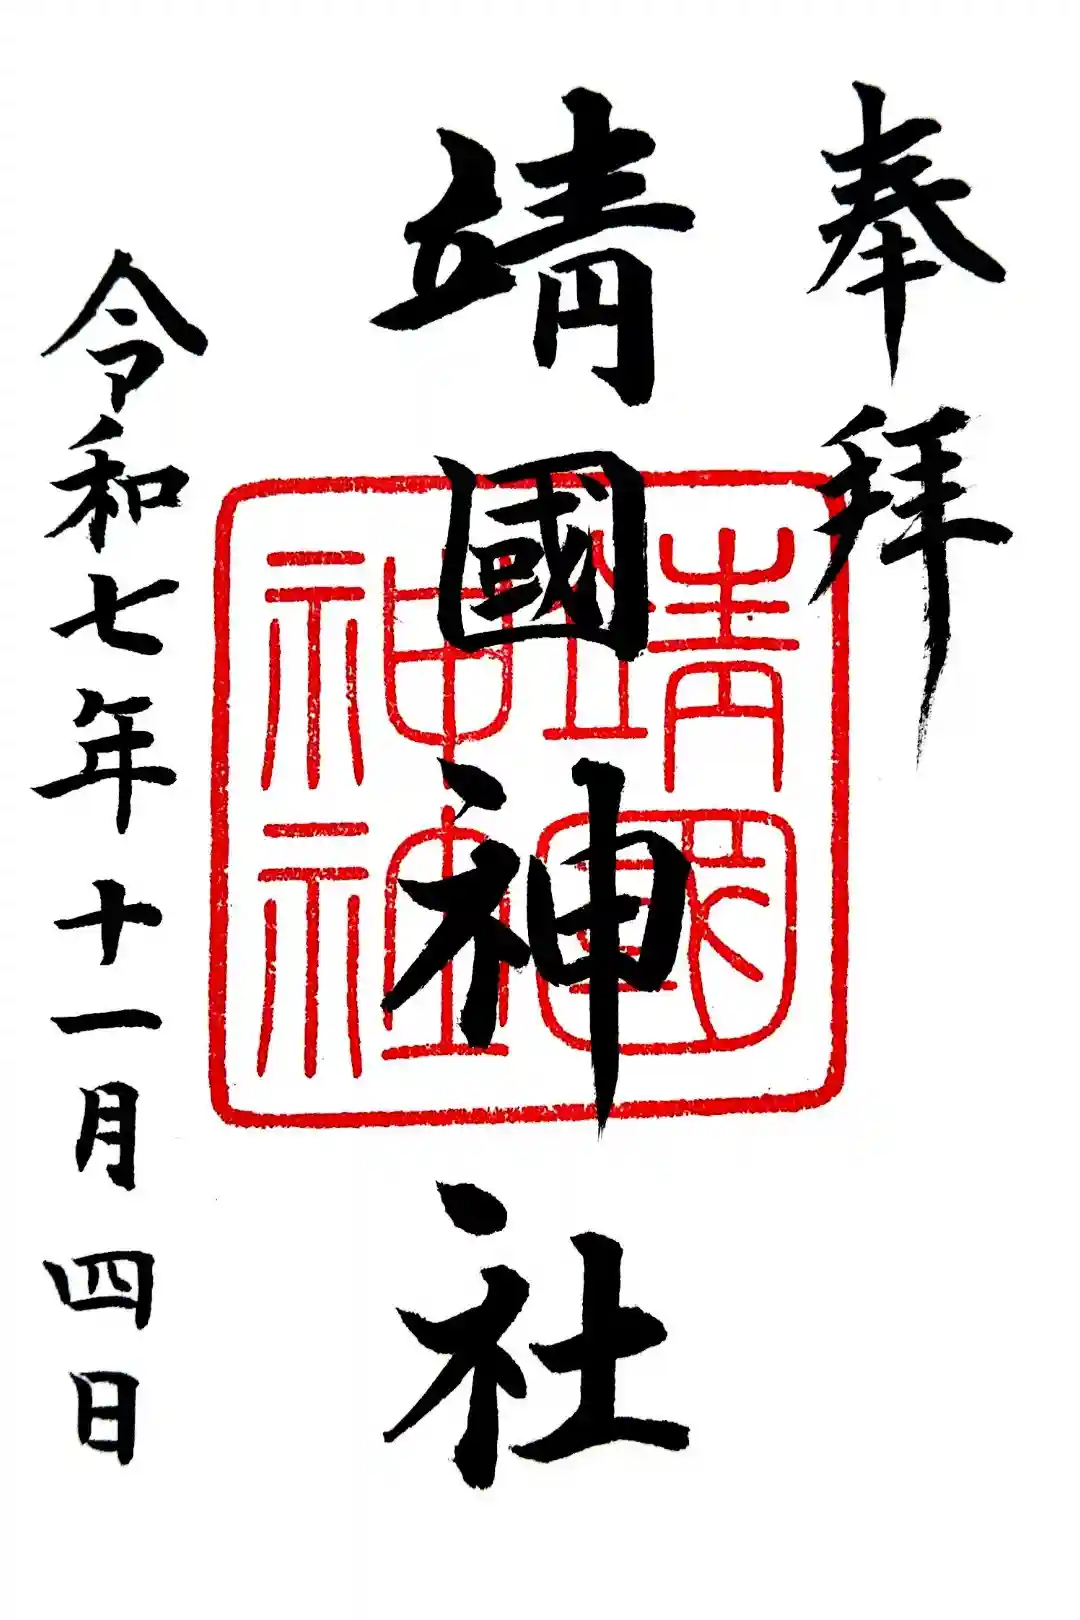 奉拝
靖國神社
靖國
神社
令和七年十一月四日